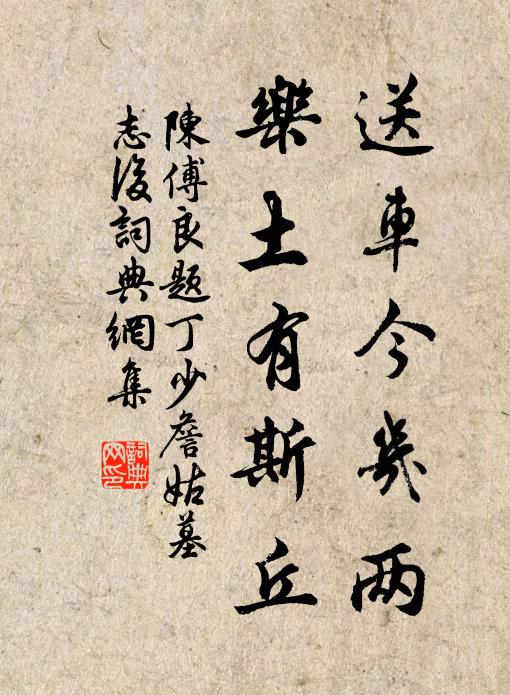 送車今幾两
樂土有斯丘
陳傅良題丁少詹姑墓
志後詞典網集
詞典
网印